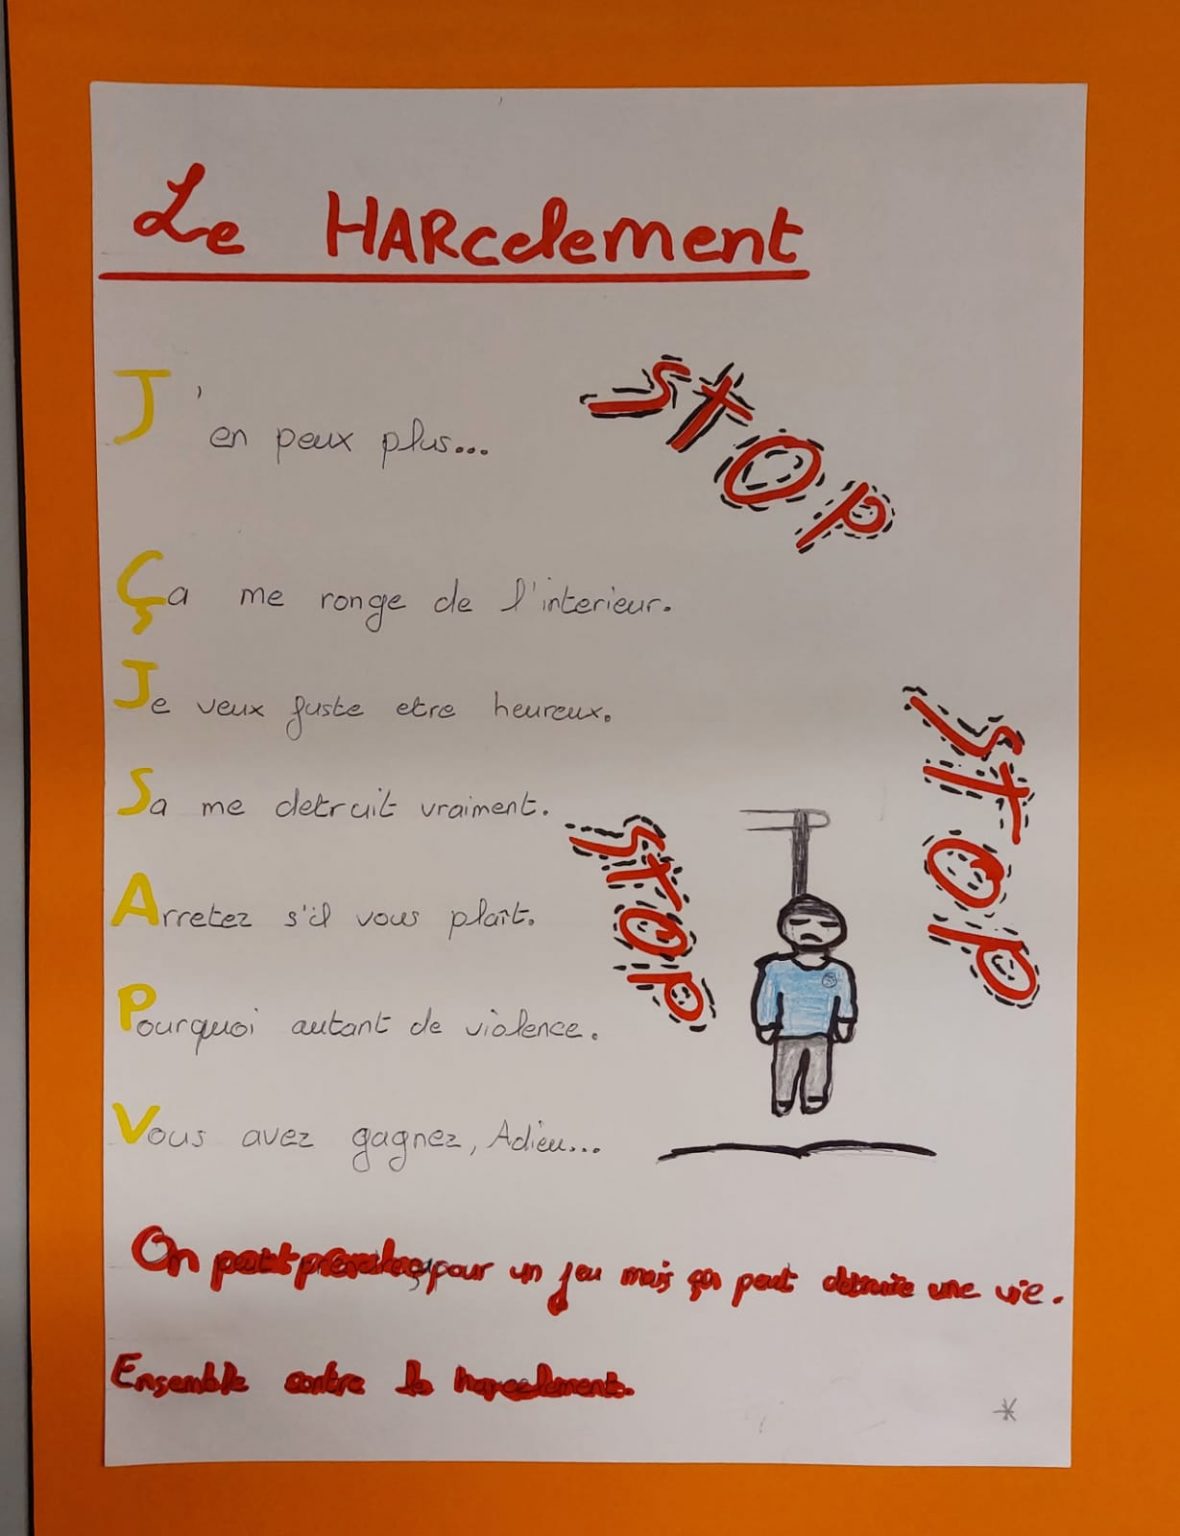 Le HARcelement
J'en peux plus...
STOP
Ça me ronge de l'interieur.
Je veux juste etre heureux.
STOP
Sa me detruit vraiment.
STOP
Arretez s'il vous plaît.
Pourquoi autant de violence.
Vous avez gagnez, Adieu...
On peut prendre ça pour un jeu mais ça peut detruire une vie.
Ensemble contre le harcelement.